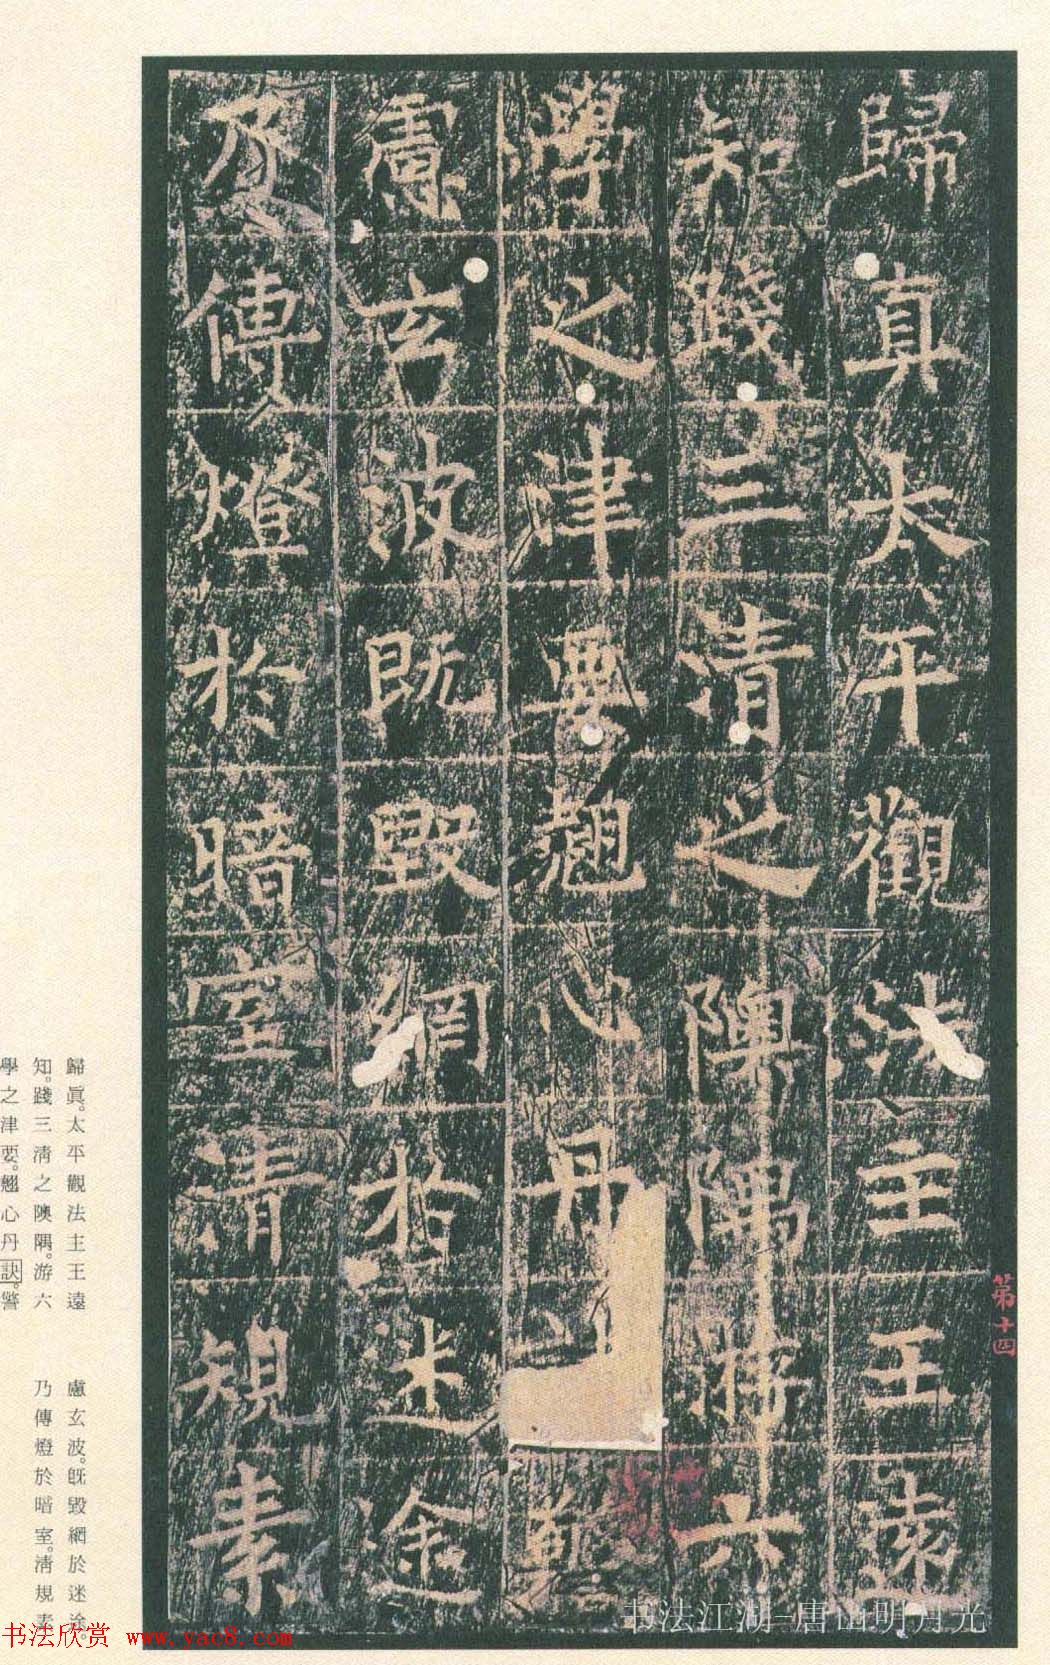 歸真太平觀法主王遠
知踐三清之隩隅游六
學之津要翹心丹
慮玄波既毀網於迷途
乃傳燈於暗室清規素
第十四
歸眞。太平觀法主王遠
知。踐三清之隩隅。游六
學之津要。翹心丹訣。警
慮玄波。既毀網於迷途。
乃傳燈於暗室。清規素
书法江湖-唐山明月光
书法欣赏 www.yac8.com